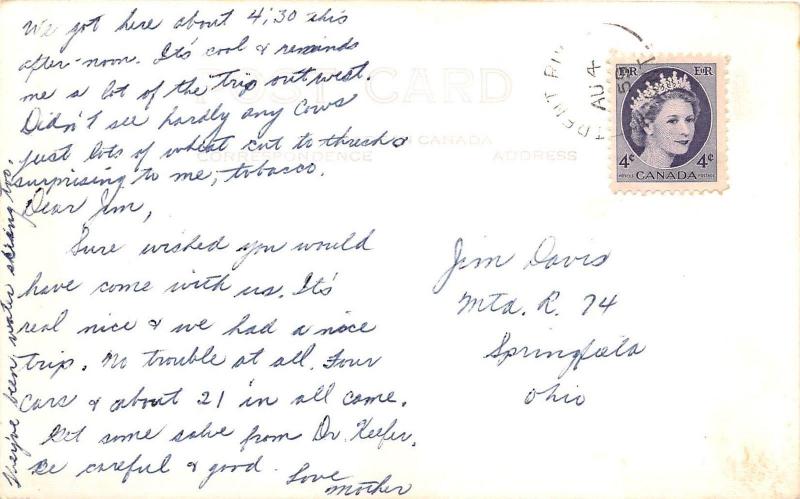 We got here about 4:30 this
after-noon. It's cool & reminds
me a lot of the trip out west.
Didn't see hardly any cows
just lots of wheat cut to thresh &
surprising to me, tobacco.
Dear Jim,
Sure wished you would
have come with us. It's
real nice & we had a nice
trip. No trouble at all. Four
cars & about 21 in all came.
Get some salve from Dr. Keefer.
Be careful & good.
Love
Mother
They've been water skiing too.
POST CARD
CANADA
CORRESPONDENCE
ADDRESS
AU 4
EIIR
EIIR
4¢
4¢
POSTES CANADA POSTAGE
Jim Davis
Mtd. R. 74
Springfield
Ohio